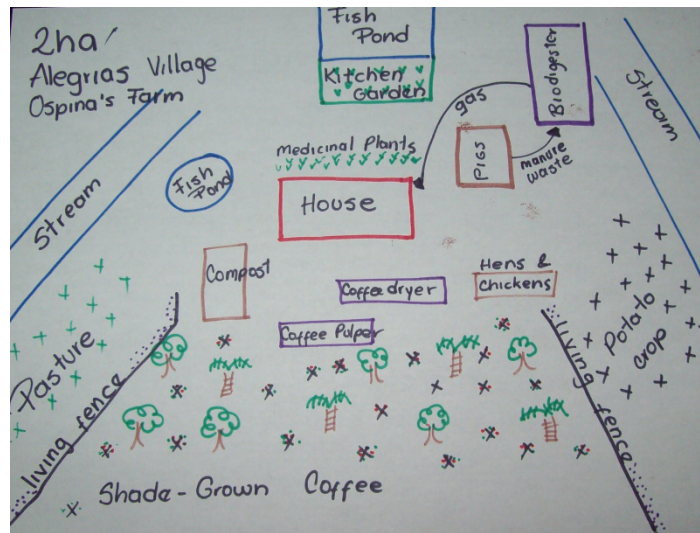 2ha
Alegrias Village
Ospina's Farm
Fish
Pond
Kitchen
Garden
Biodigester
Stream
gas
Pigs
manure
waste
Medicinal Plants
House
Fish
Pond
Stream
Compost
Coffee dryer
Hens &
Chickens
Coffee Pulper
Pasture
living fence
Potato
crop
living fence
Shade-Grown Coffee